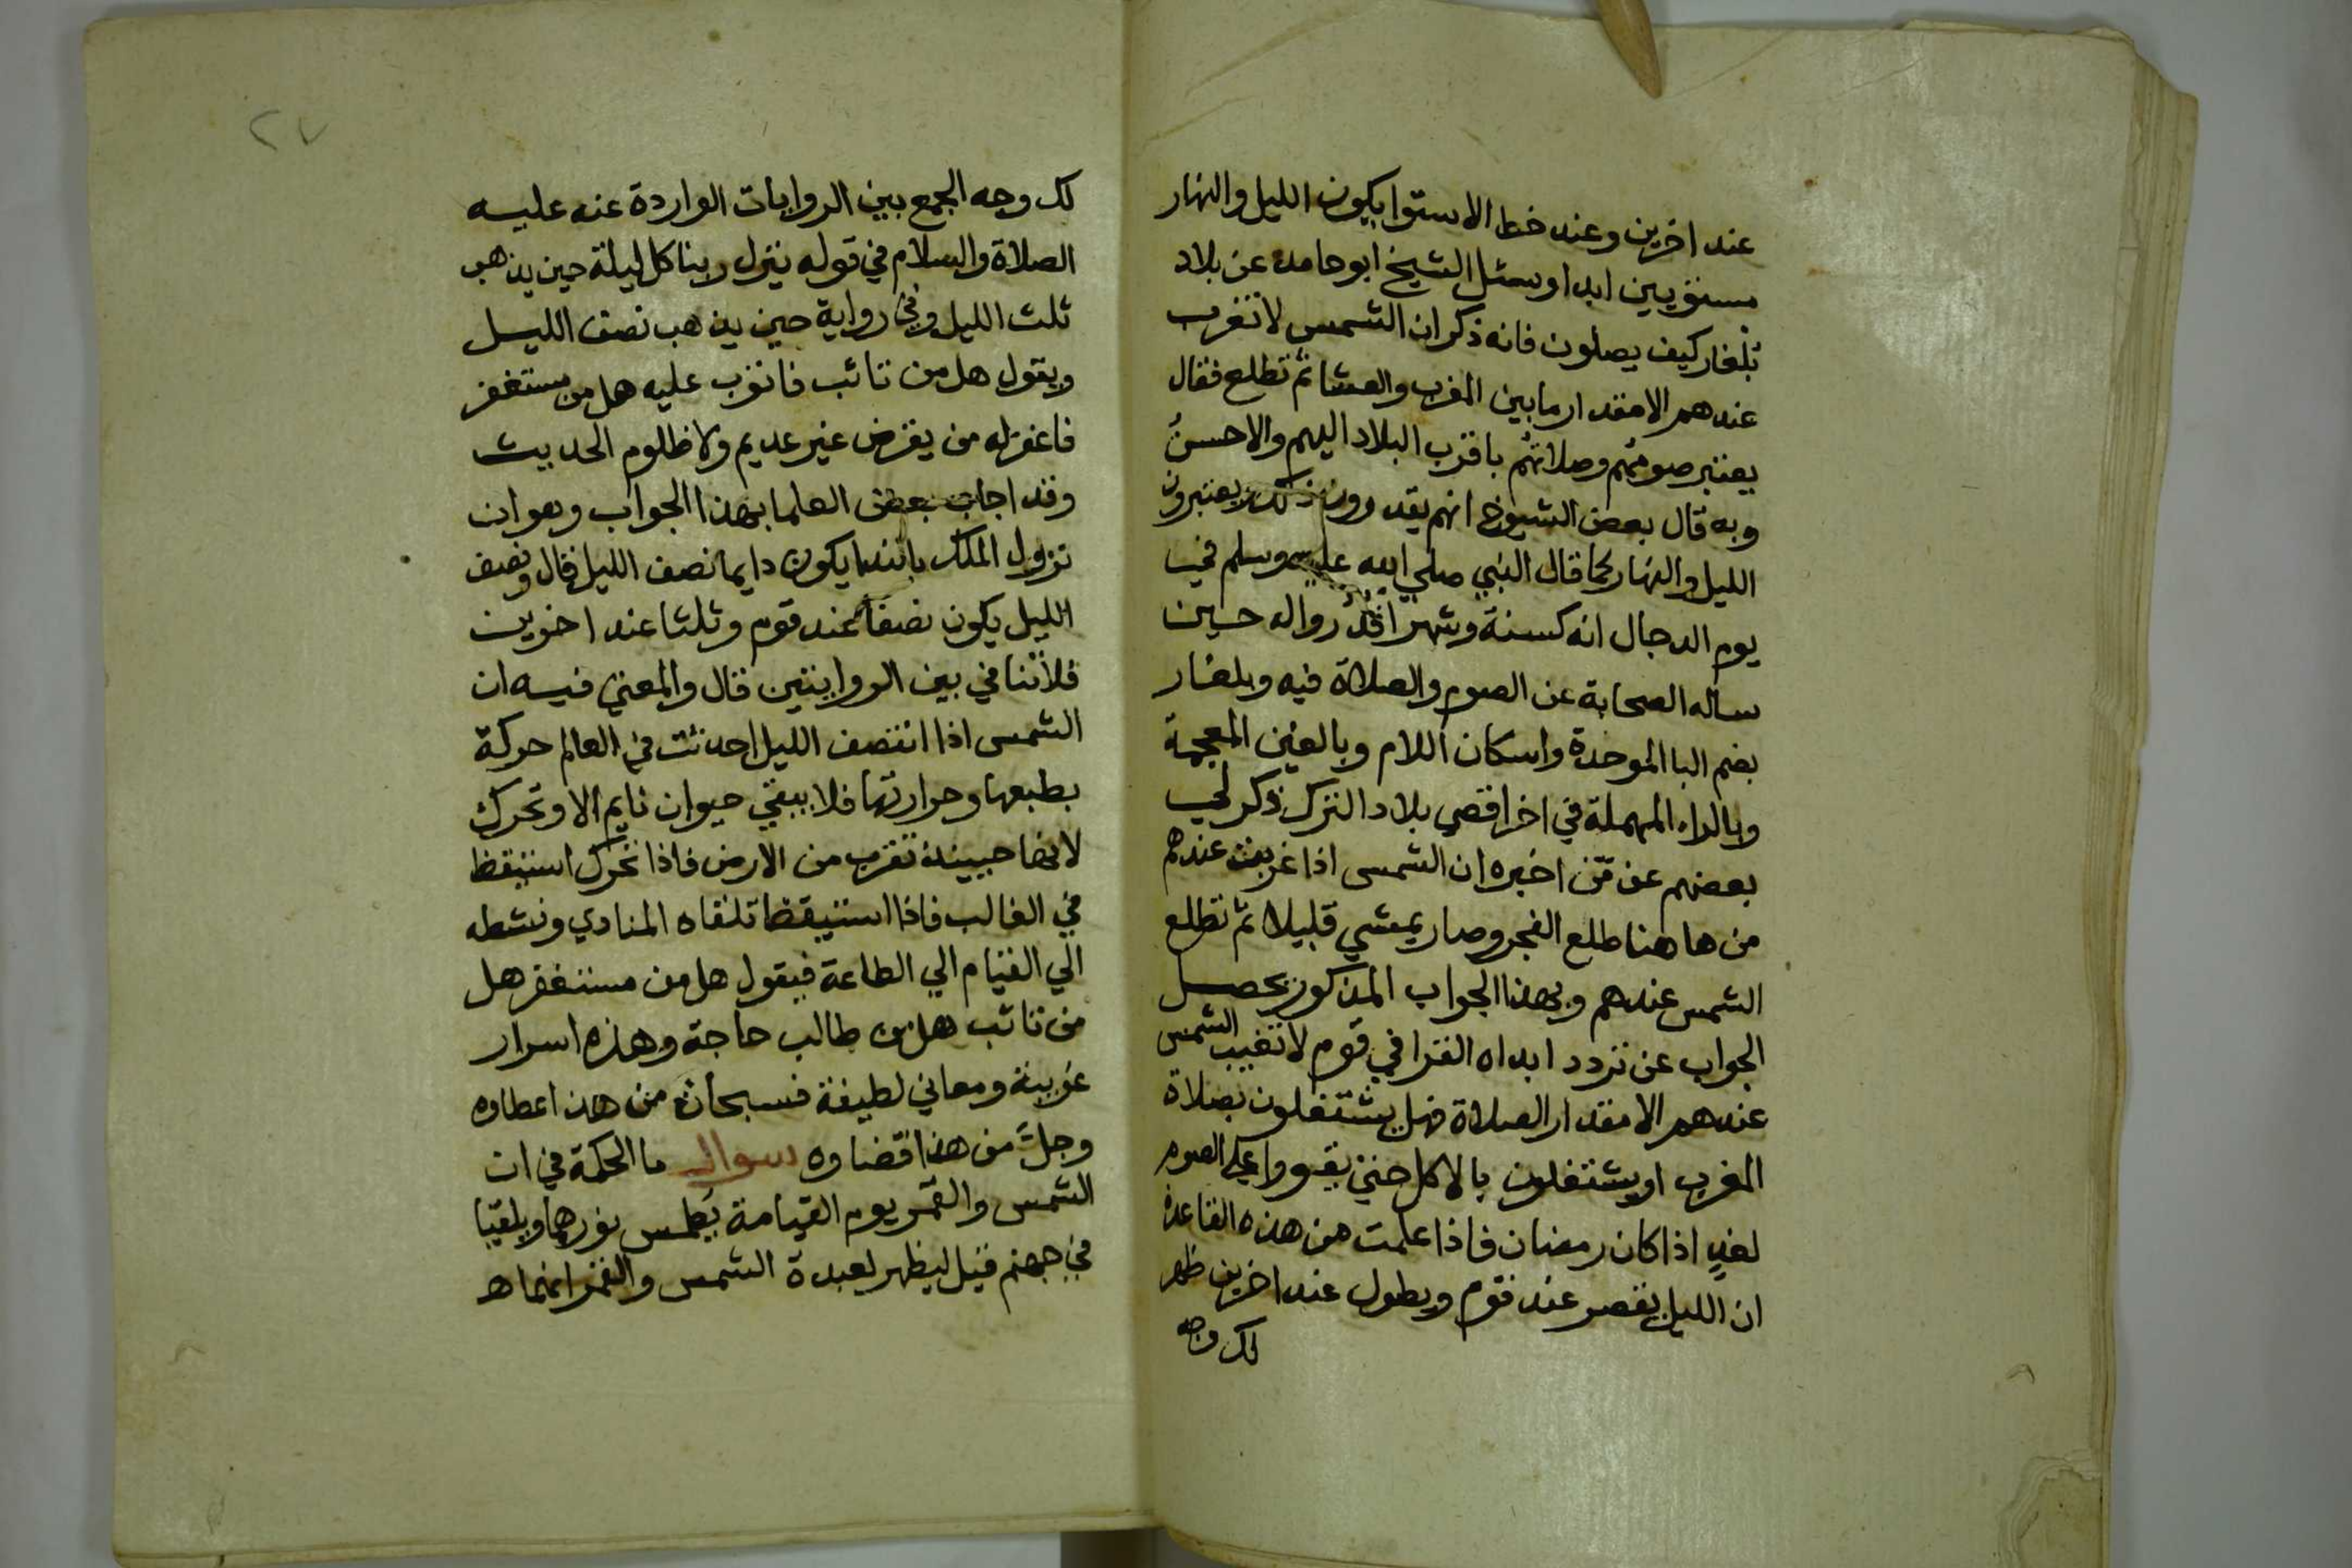 عند اخرين وعند خط الاستوا يكون الليل والنهار
مستويين ابدا وسئل الشيخ ابو حامد عن بلاد
بُلغار كيف يصلون فانه ذكر ان الشمس لا تغرب
عندهم الا مقدار ما بين المغرب والعشا ثم تطلع فقال
يعتبر صومهم وصلاتهم باقرب البلاد اليهم والاحسن
وبه قال بعض الشيوخ انهم يقدرون ذلك ويعتبرون
الليل والنهار كما قال النبي صلي الله عليه وسلم في
يوم الدجال انه كسنة وشهر اقدُرُوا له حين
ساله الصحابة عن الصوم والصلاة فيه وبلغار
بضم البا الموحدة واسكان اللام وبالغين المعجمة
وبالراء المهملة في اخر اقصي بلاد الترك ذكر لي
بعضهم عن من اخبره ان الشمس اذا غربت عندهم
من ها هنا طلع الفجر وصار يمشي قليلا ثم تطلع
الشمس عندهم وبهذا الجواب المذكور يحصل
الجواب عن تردد ابداه القرافي قوم لا تغيب الشمس
عندهم الا مقدار الصلاة فهل يشتغلون بصلاة
المغرب او يشتغلون بالاكل حتي يقووا علي الصوم
لغدٍ اذا كان رمضان فاذا علمت من هذه القاعدة
ان الليل يقصر عند قوم ويطول عند اخرين ظهر
لك وجه
٢٧
لك وجه الجمع بين الروايات الواردة عنه عليه
الصلاة والسلام في قوله ينزل ربنا كل ليلة حين يذهب
ثلث الليل وفي رواية حين يذهب نصف الليل
ويقول هل من تائب فاتوب عليه هل من مستغفر
فاغفر له من يقرض غير عديم ولا ظلوم الحديث
وقد اجاب بعض العلما بهذا الجواب وهو ان
نزول الملك بالندا يكون دايما نصف الليل قال ونصف
الليل يكون نصفا عند قوم وثلثا عند اخرين
فلا تنافي بين الروايتين قال والمعني فيه ان
الشمس اذا انتصف الليل احدثت في العالم حركة
بطبعها وحرارتها فلا يبقي حيوان نايم الا وتحرك
لانها حينيذ تقرب من الارض فاذا تحرك استيقظ
في الغالب فاذا استيقظ تلقاه المنادي ونشطه
الي القيام الي الطاعة فيقول هل من مستغفر هل
من تائب هل من طالب حاجة وهذه اسرار
غريبة ومعاني لطيفة فسبحان من هذ اعطاوه
وجلّ من هذا قضاوه سوال ما الحكمة في ان
الشمس والقمر يوم القيامة يُطمس نورهما ويلقيا
في جهنم قيل ليظهر لعبدة الشمس والقمر انهما ه